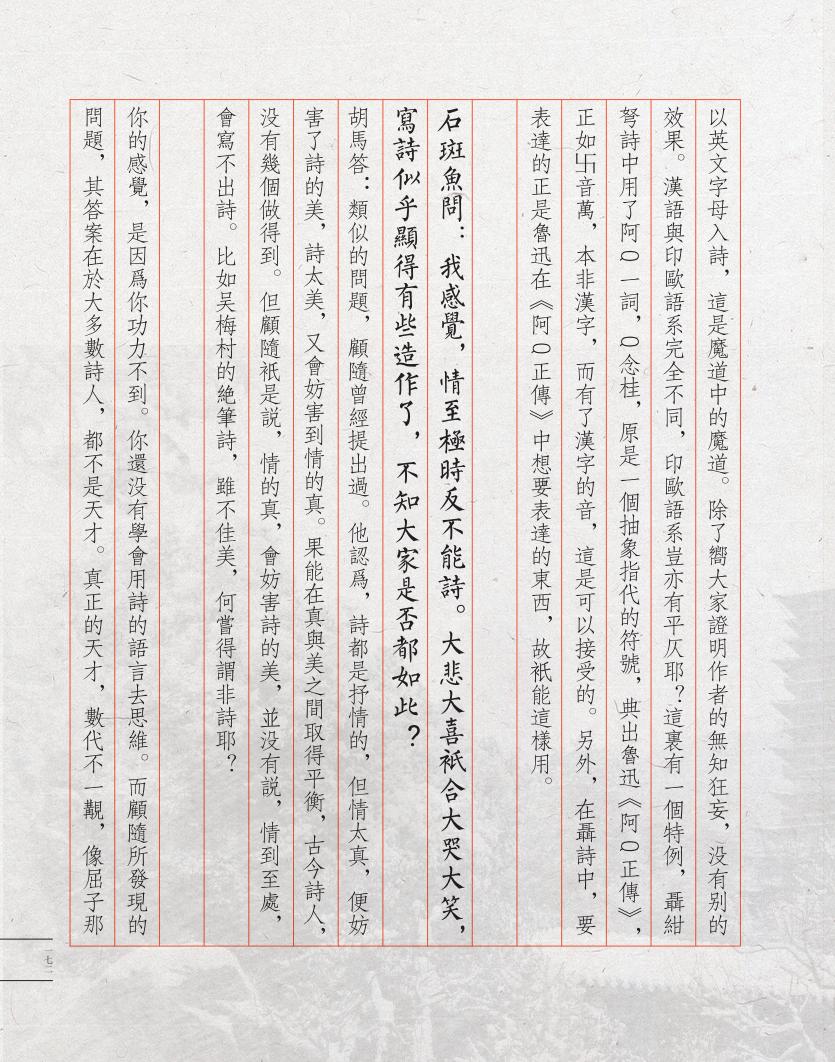 以英文字母入詩，這是魔道中的魔道。除了嚮大家證明作者的無知狂妄，没有别的
效果。漢語與印歐語系完全不同，印歐語系豈亦有平仄耶？這裏有一個特例，聶紺
弩詩中用了阿Q一詞，Q念桂，原是一個抽象指代的符號，典出魯迅《阿Q正傳》，
正如卐音萬，本非漢字，而有了漢字的音，這是可以接受的。另外，在聶詩中，要
表達的正是魯迅在《阿Q正傳》中想要表達的東西，故衹能這樣用。
石斑魚問：我感覺，情至極時反不能詩。大悲大喜衹合大哭大笑，
寫詩似乎顯得有些造作了，不知大家是否都如此？
胡馬答：類似的問題，顧隨曾經提出過。他認爲，詩都是抒情的，但情太真，便妨
害了詩的美，詩太美，又會妨害到情的真。果能在真與美之間取得平衡，古今詩人，
没有幾個做得到。但顧隨衹是説，情的真，會妨害詩的美，並没有説，情到至處，
會寫不出詩。比如吴梅村的絶筆詩，雖不佳美，何嘗得謂非詩耶？
你的感覺，是因爲你功力不到。你還没有學會用詩的語言去思維。而顧隨所發現的
問題，其答案在於大多數詩人，都不是天才。真正的天才，數代不一覯，像屈子那
一七二